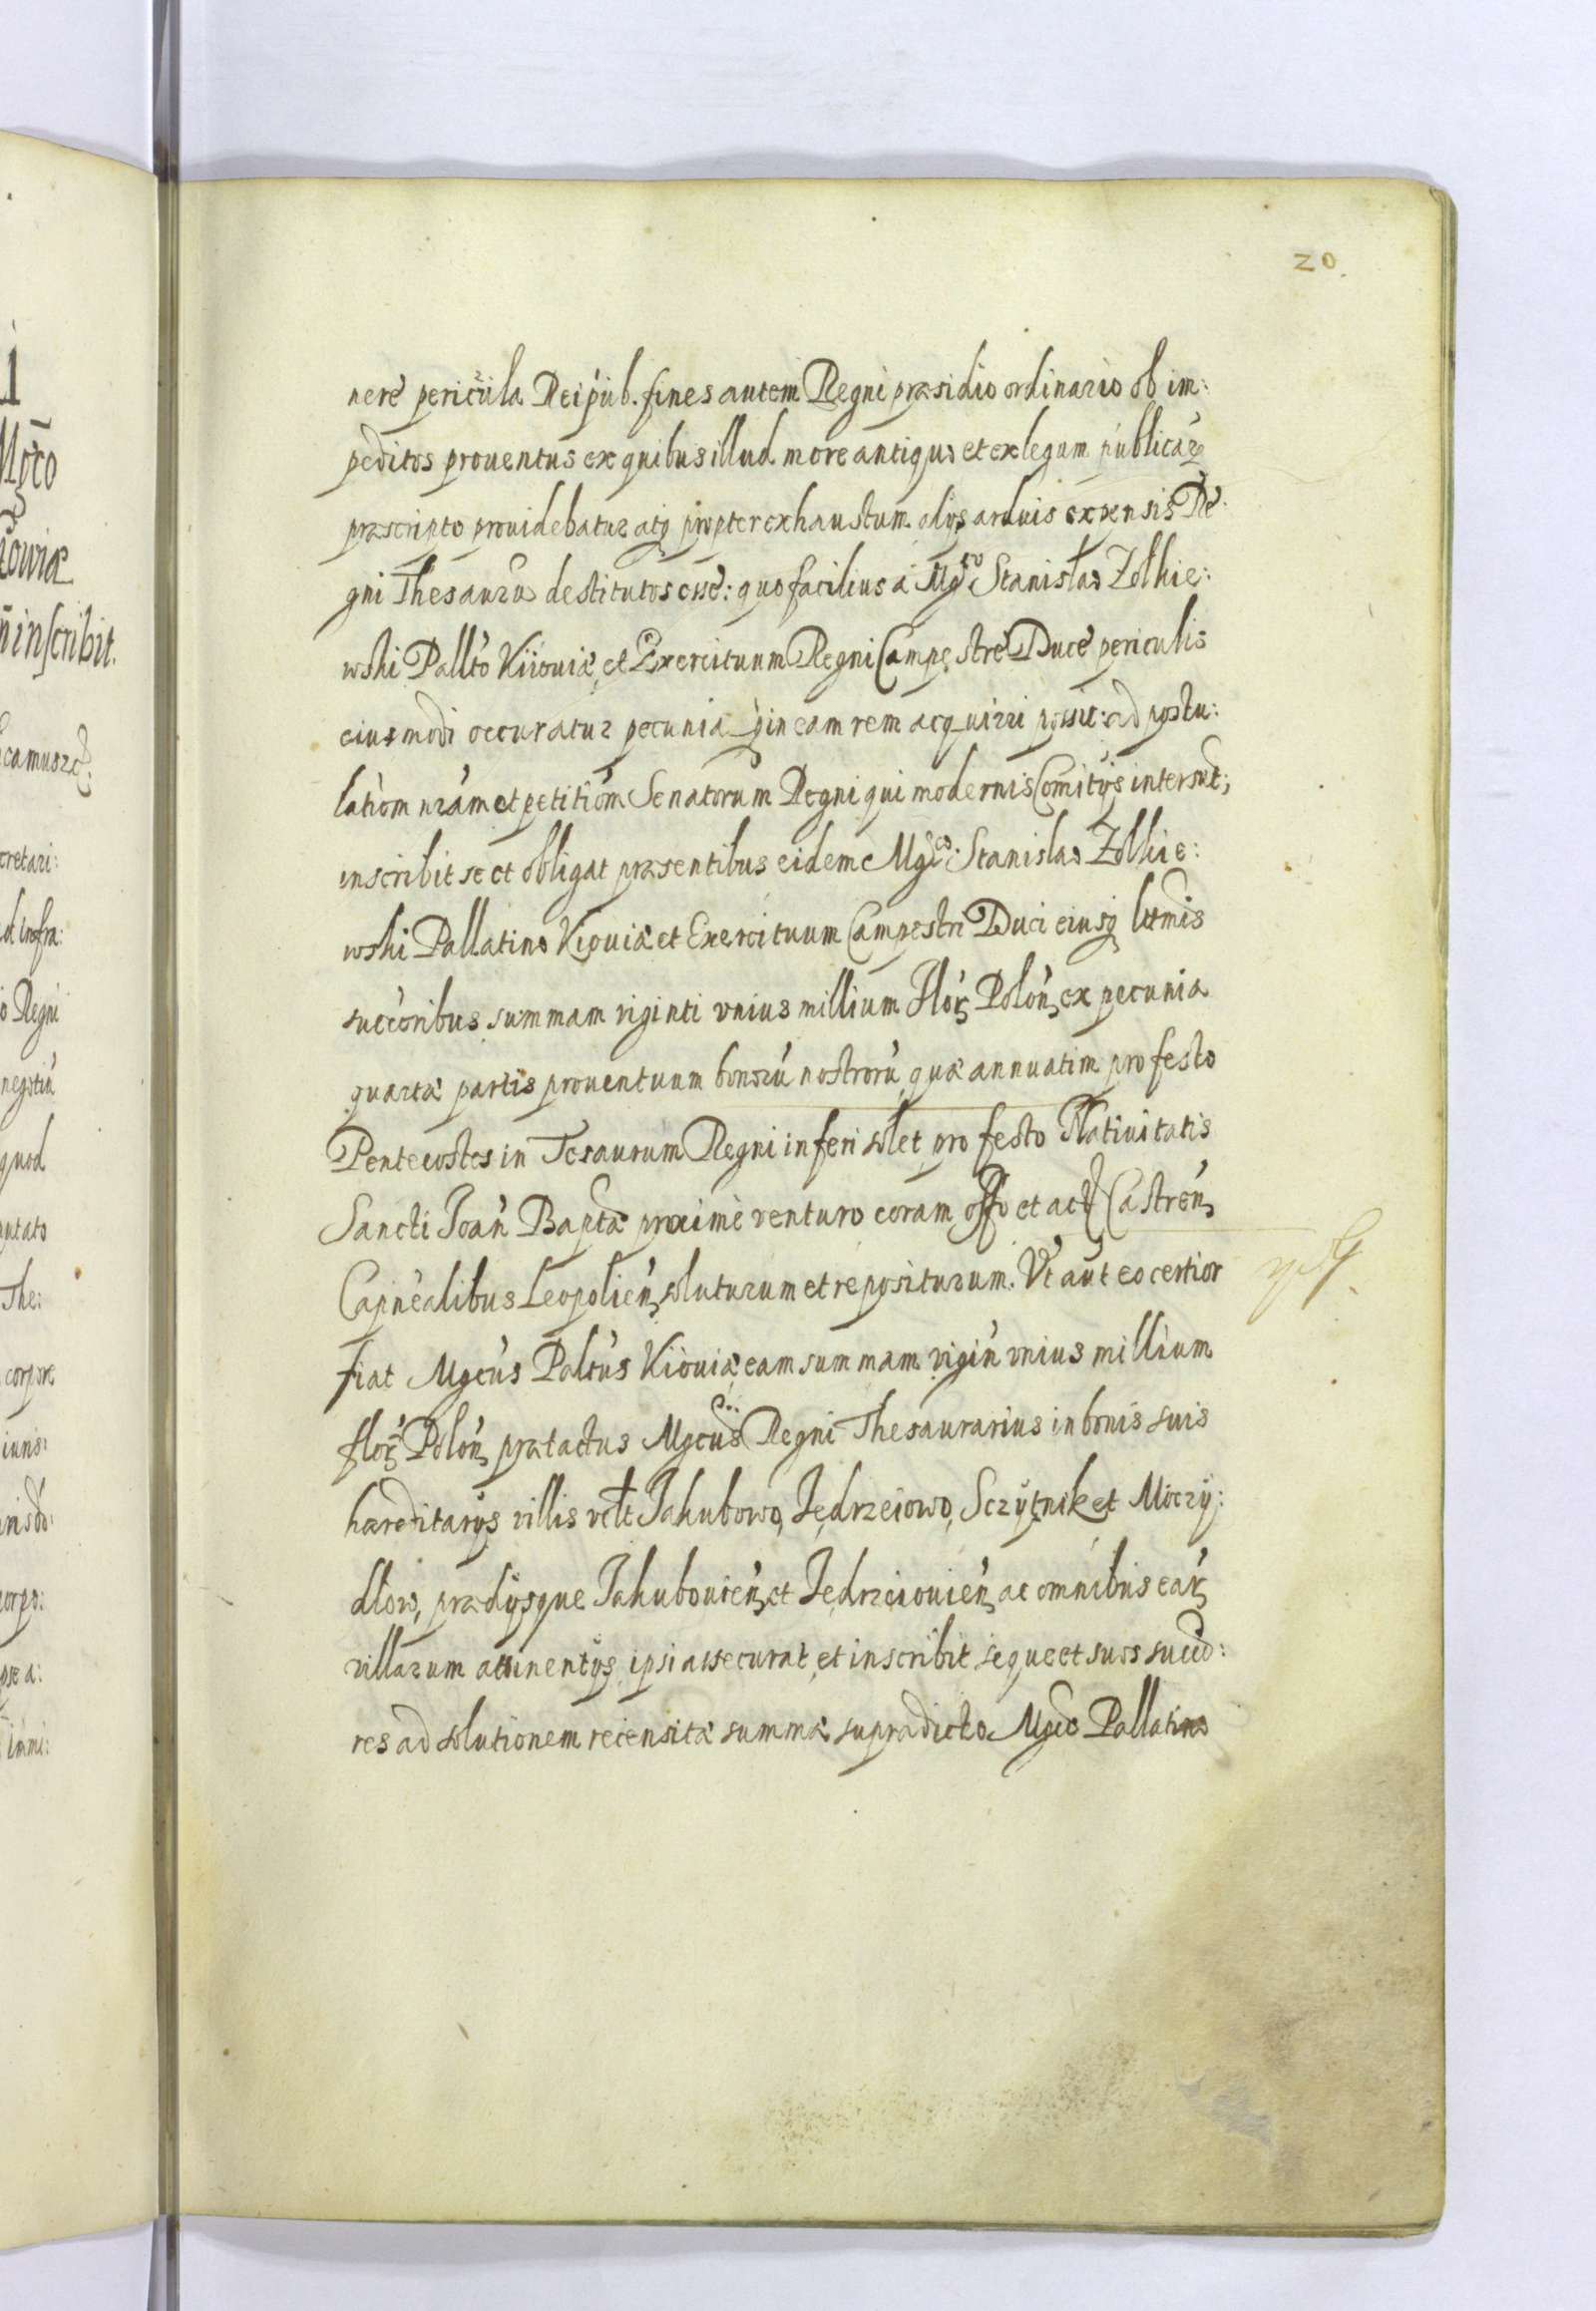 20.
nere pericula Reipub. fines autem Regni præsidio ordinario ob im:
peditos prouentus ex quibus illud more antiquo et ex legum publicar̃
præscripto prouidebatur atq̃ propter exhaustum alijs arduis expensis Re:
gni Thesauru destitutos esse: quo facilius à Mgco Stanislao Zolkie:
wski Pallto Kiiouiæ et Exercituum Regni Campestre Duce periculis
eiusmodi occuratur pecunia q̃ in eam rem acquiri possit: ad postu:
latiom nr̃am et petitiom Senatorum Regni qui modernis Comitijs intersũt;
inscribit se et obligat præsentibus eidem Mgco: Stanislao Zolkie:
wski Pallatino Kiouiæ et Exercituum Campestri Duci eiusq̃ ltimis
succoribus summam viginti vnius millium Flor̃ Polon̄ ex pecunia
quartæ partis prouentuum bonorũ nostrorũ quæ annuatim pro festo
Pentecostes in Tesaurum Regni inferi solet pro festo Natiuitatis
Sancti Joan̄ Baptæ proximè venturo coram offo et act̃ Castren̄
Capnealibus Leopolien̄ soluturum et repositurum. Vt aũt eo certior
fiat Mgcus Paltus Kiiouiæ eam summam vigin̄ vnius millium
flor̃ Polon̄ prætactus Mgcus Regni Thesaurarius in bonis suis
hæreditarijs villis vclt Jakubowo, Jędrzeiowo, Sczytnik et Moczy:
dlow, prædijsque Jakubouien̄ et Jędrzeiouien̄ ac omnibus ear̃
villarum attinentijs ipsi assecurat, et inscribit seque et suos succo:
res ad solutionem recensitæ summæ supradicto Mgco Pallatino